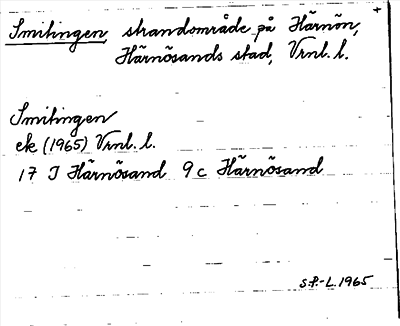 Smitingen, strandområde på Härnön,
Härnösands stad, Vrnl. l.
Smitingen
ek (1965) Vrnl. l.
17 J Härnösand 9 c Härnösand
S.P.-L. 1965